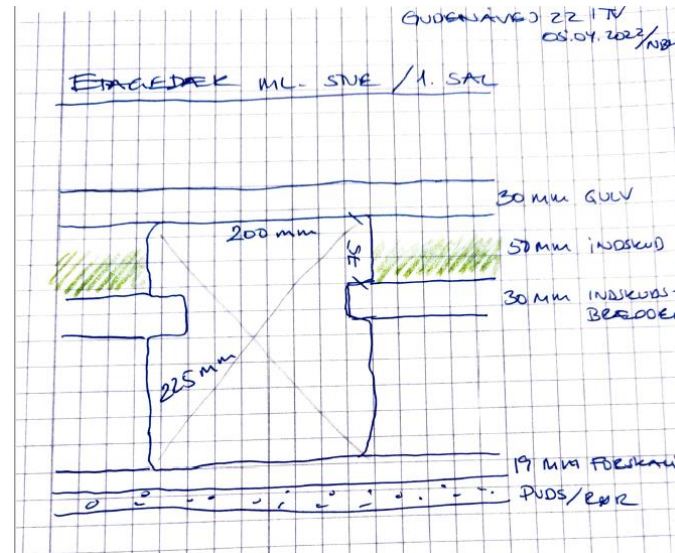 GUDENÅVEJ 22 1TV
05.04.2022/NBH
ETAGEDÆK ML. STUE / 1. SAL
30 MM GULV
200 mm
75
50 MM INDSKUD
30 MM INDSKUDS-
BRÆDDER
225 mm
19 MM FORSKALL
PUDS/RØR